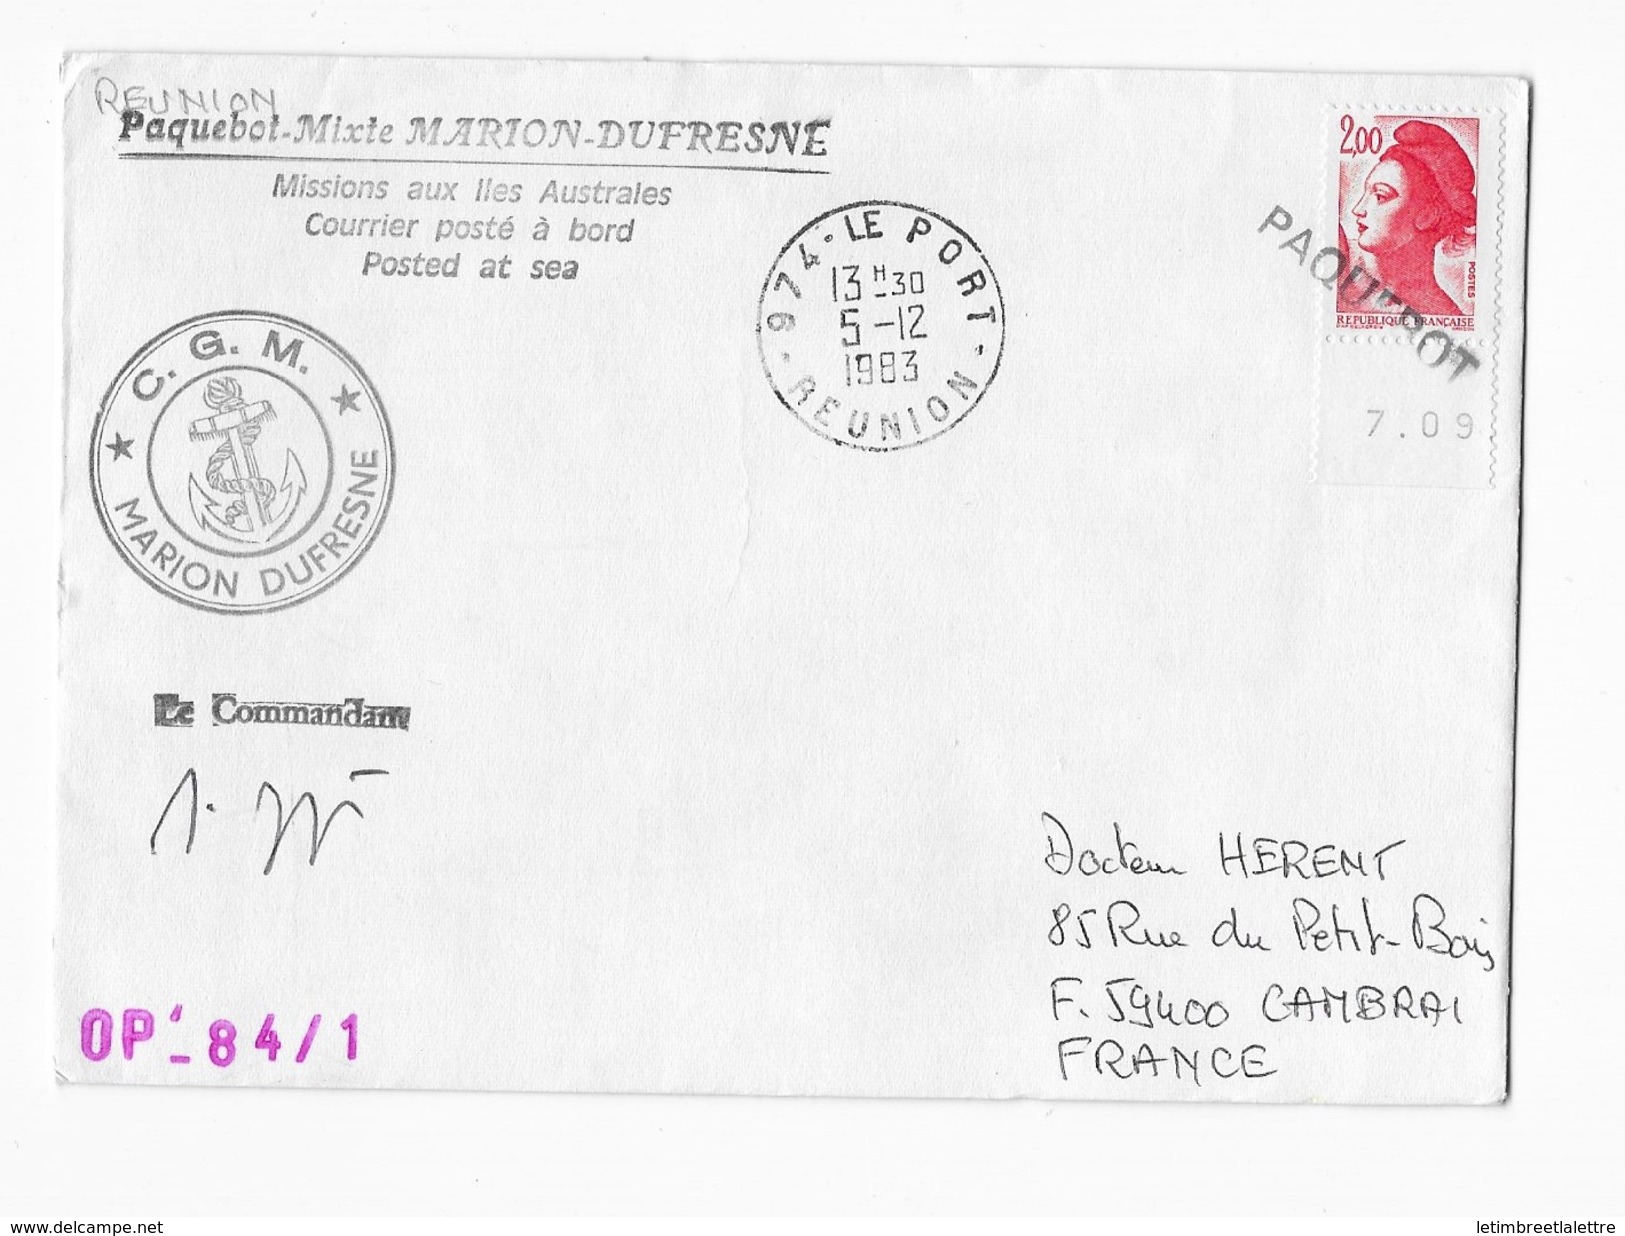 REUNION
Paquebot-Mixte MARION-DUFRESNE
Missions aux Iles Australes
Courrier posté à bord
Posted at sea
C. G. M.
MARION DUFRESNE
974 - LE PORT
13H30
5-12
1983
REUNION
2,00
POSTES
REPUBLIQUE FRANÇAISE
PAQUEBOT
7.09
Le Commandant
Docteur HERENT
85 Rue du Petit-Bois
F. 59400 CAMBRAI
FRANCE
OP'-84/1
www.delcampe.net
letimbreetlalettre